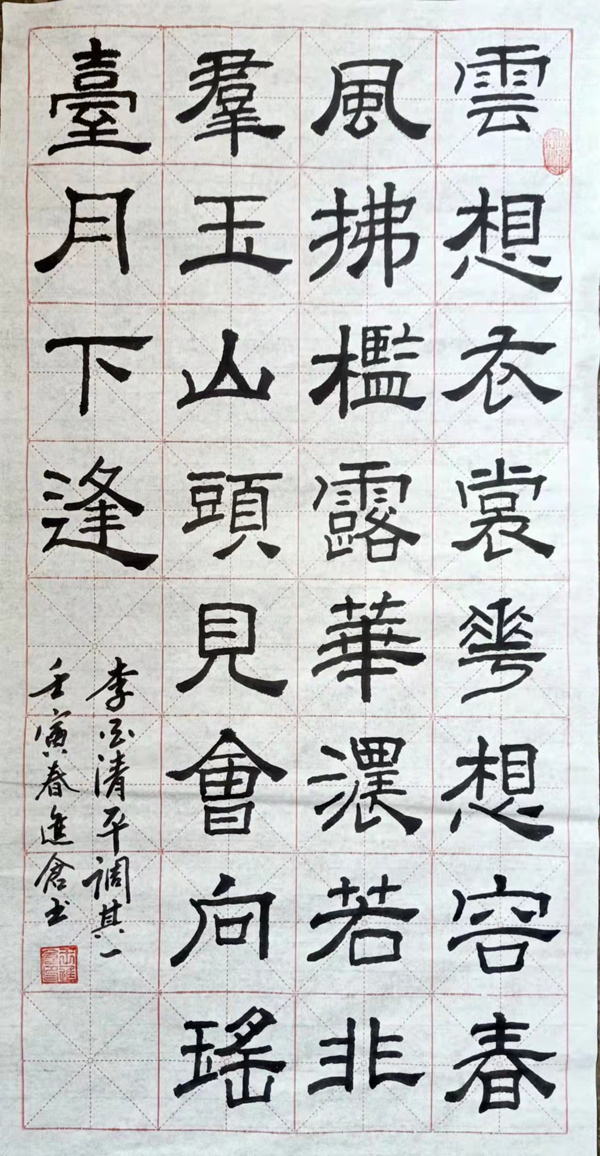 雲想衣裳花想容春
風拂檻露華濃若非
羣玉山頭見會向瑤
臺月下逢
李白清平调其一
壬寅春進倉书